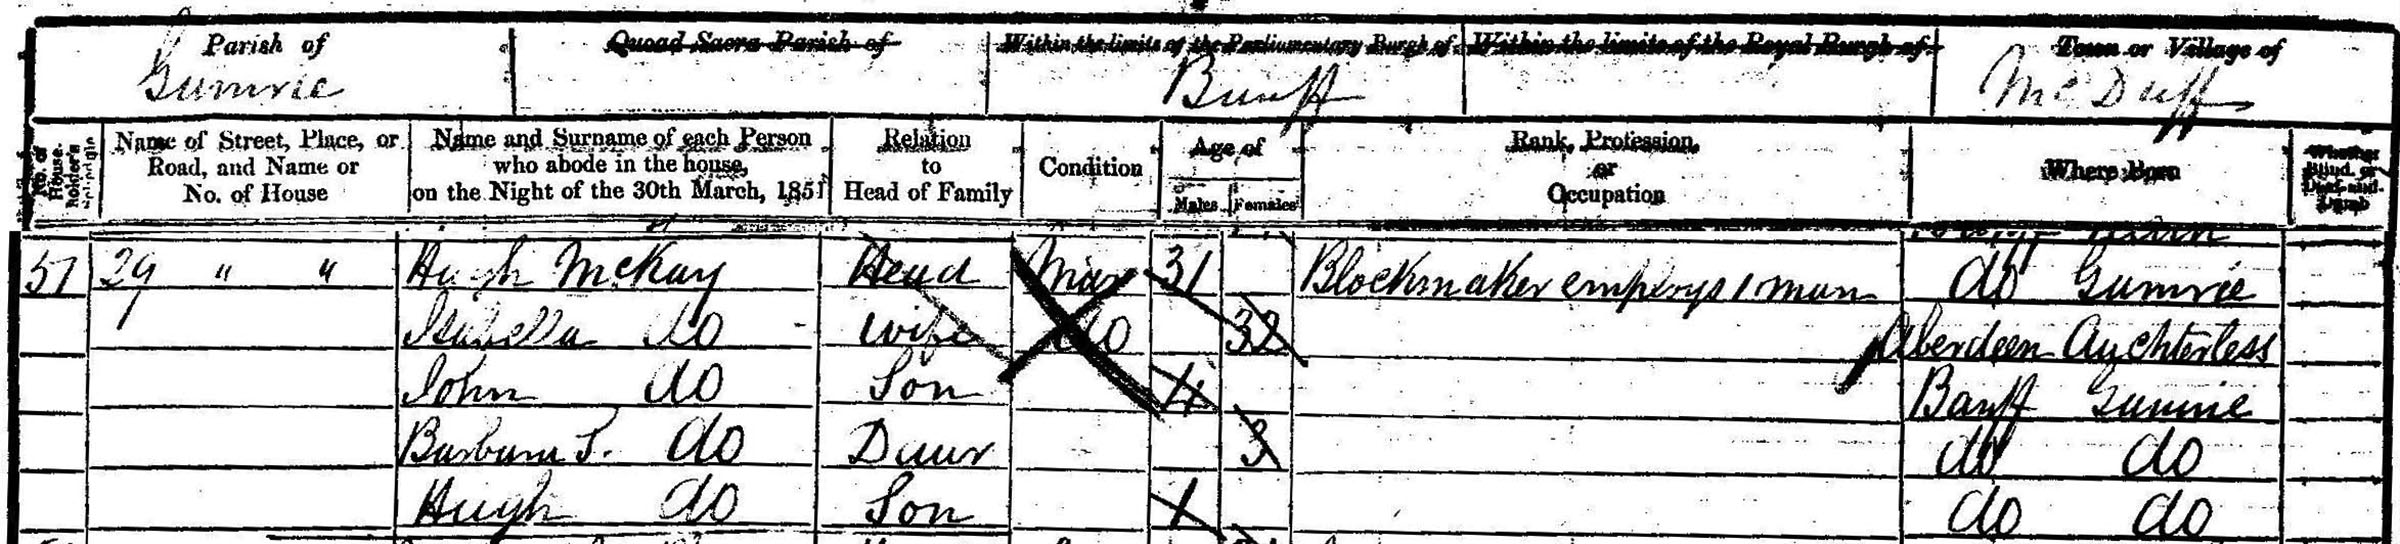 Parish of
Gumrie
Quoad Sacra Parish of
Within the limits of the Parliamentary Burgh of
Banff
Within the limits of the Royal Burgh of
Town or Village of
McDuff
No. of House-holder's Schedule
Name of Street, Place, or Road, and Name or No. of House
Name and Surname of each Person who abode in the house, on the Night of the 30th March, 1851
Relation to Head of Family
Condition
Age of
Males Females
Rank, Profession, or Occupation
Where Born
Whether Blind, or Deaf-and-Dumb
57 29 " " Hugh McKay Head Mar 31 Blockmaker employs 1 man do Gumrie
Isabella do Wife do 32 Aberdeen Auchterless
John do Son 4 Banff Gumrie
Barbara S. do Daur 3 do do
Hugh do Son 1 do do